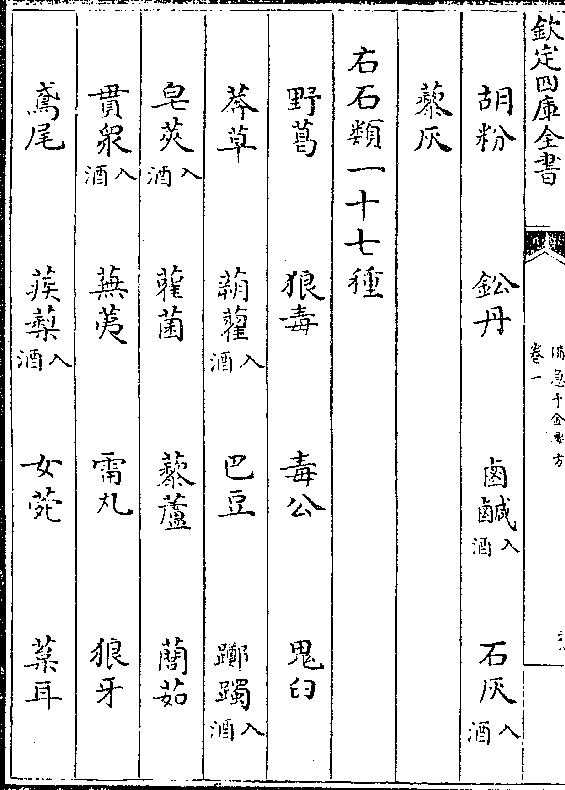 欽定四庫全書
卷一
胡粉 鈆丹 鹵鹹入酒 石灰入酒
藜灰
右石類一十七種
野葛 狼毒 毒公 鬼臼
莽草 蒴藋入酒 巴豆 躑躅入酒
皂莢入酒 雚菌 藜蘆 䕡茹
貫衆入酒 蕪荑 雷丸 狼牙
鳶尾 蒺藜入酒 女菀 葈耳